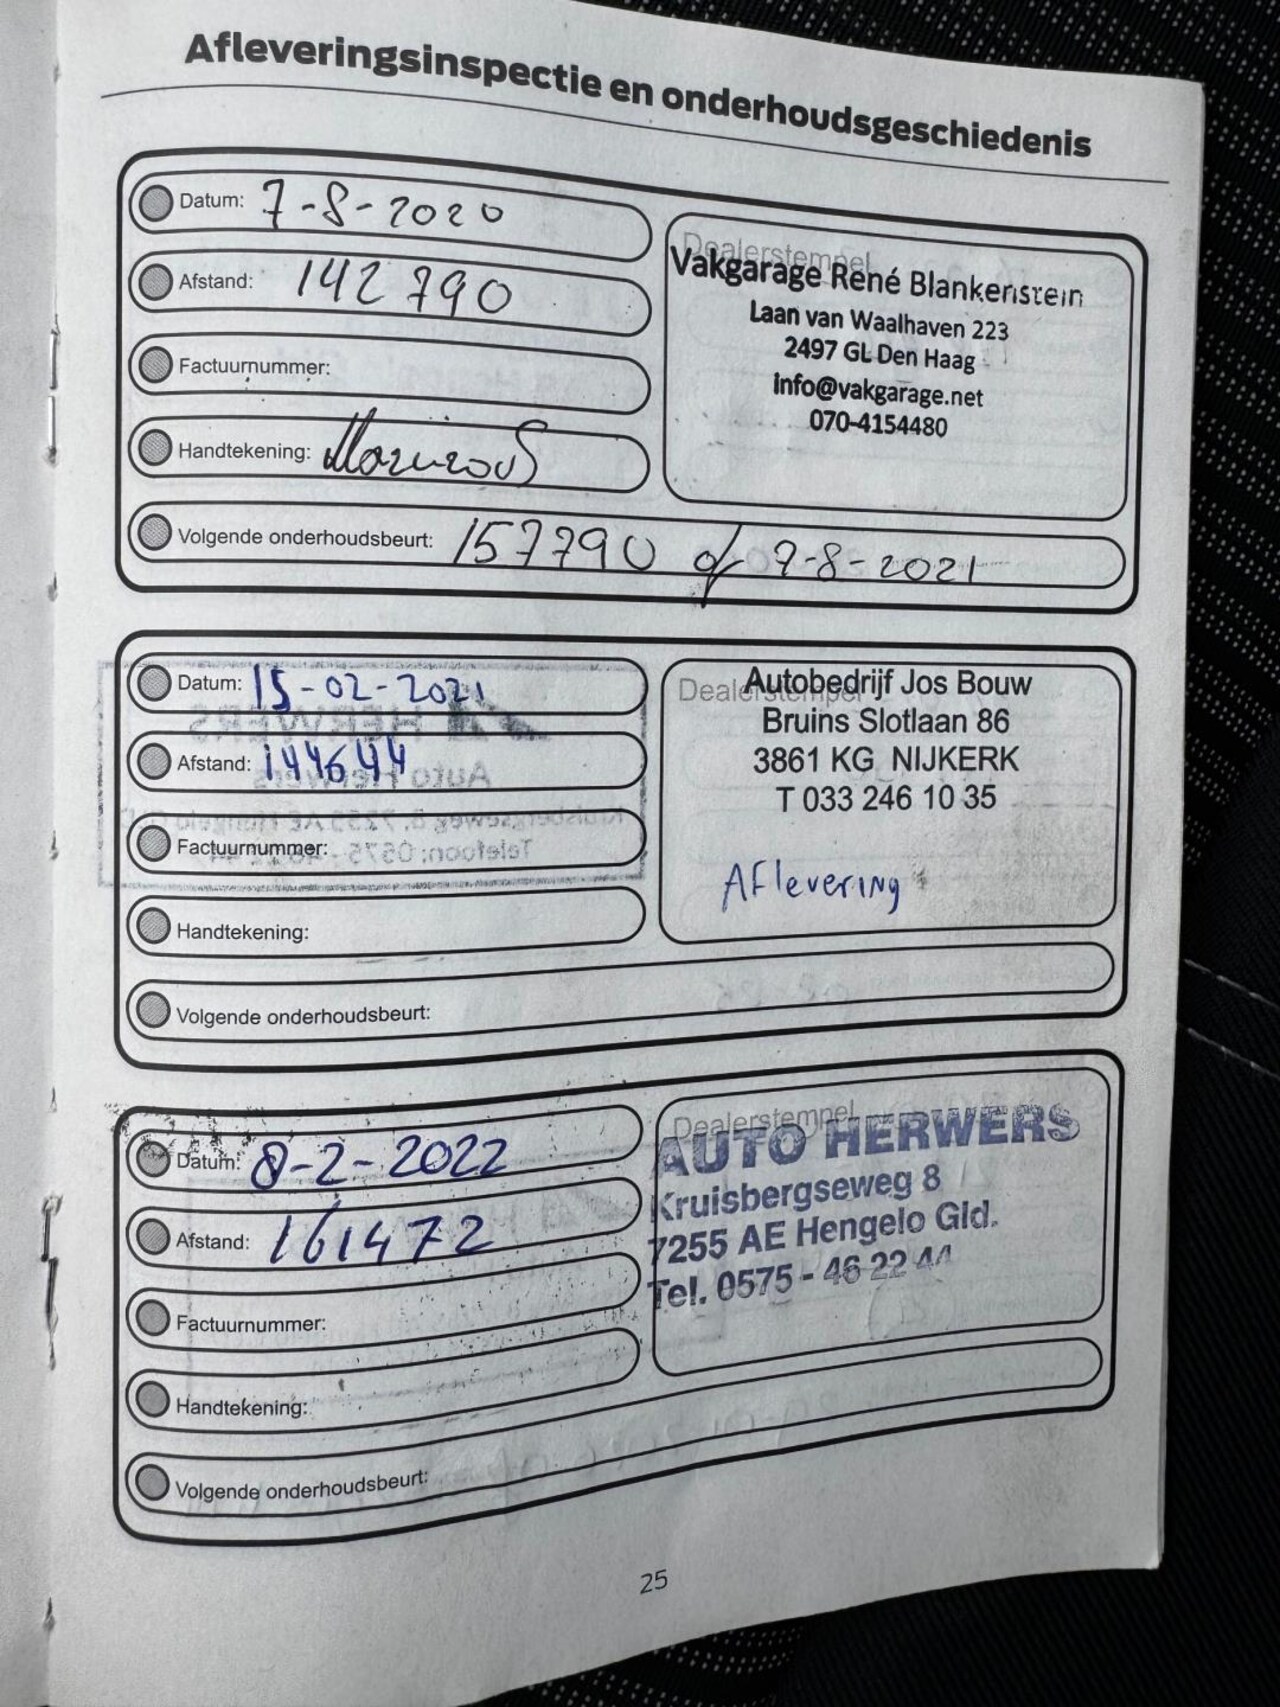 Afleveringsinspectie en onderhoudsgeschiedenis
Datum: 7-8-2020
Afstand: 142790
Factuurnummer:
Handtekening:
Volgende onderhoudsbeurt: 157790 of 7-8-2021
Dealerstempel
Vakgarage René Blankenstein
Laan van Waalhaven 223
2497 GL Den Haag
info@vakgarage.net
070-4154480
Datum: 15-02-2021
Afstand: 144644
Factuurnummer:
Handtekening:
Volgende onderhoudsbeurt:
Dealerstempel
Autobedrijf Jos Bouw
Bruins Slotlaan 86
3861 KG NIJKERK
T 033 246 10 35
Aflevering
Datum: 8-2-2022
Afstand: 161472
Factuurnummer:
Handtekening:
Volgende onderhoudsbeurt:
Dealerstempel
AUTO HERWERS
Kruisbergseweg 8
7255 AE Hengelo Gld.
Tel. 0575 - 46 22 44
25